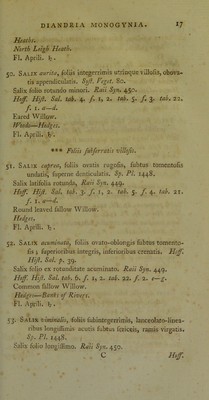 DIANDRIA MONOGYNIA. 17
Heaths.
North Leigh Heath.
Fl. Aprili. ♄.
50. SALIX aurita, foliis integerrimis utrinque villosis, obova-
tis appendiculatis. Syst. Veget. 80.
Salix folio rotundo minori. Raii Syn. 450.
Hoff. Hist. Sal. tab. 4. f. 1, 2. tab. 5. f. 3. tab. 22.
f. 1. a—d.
Eared Willow.
Woods—Hedges.
Fl. Aprili. ♄.
*** Foliis subserratis villosis.
51. SALIX caprea, foliis ovatis rugosis, subtus tomentosis
undatis, superne denticulatis. Sp. Pl. 1448.
Salix latifolia rotunda, Raii Syn. 449.
Hoff. Hist. Sal. tab. 3. f. 1, 2. tab. 5. f. 4. tab. 21.
f. 1. a—d.
Round leaved sallow Willow.
Hedges.
Fl. Aprili. ♄.
52. SALIX acuminata, foliis ovato-oblongis subtus tomento-
sis; superioribus integris, inferioribus crenatis. Hoff.
Hist. Sal. p. 39.
Salix folio ex rotunditate acuminato. Raii Syn. 449.
Hoff. Hist. Sal. tab. 6. f. 1, 2. tab. 22. f. 2. e—g.
Common sallow Willow.
Hedges—Banks of Rivers.
Fl. Aprili. ♄.
53. SALIX viminalis, foliis subintegerrimis, lanceolato-linea-
ribus longissimis acutis subtus sericeis, ramis virgatis.
Sp. Pl. 1448.
Salix folio longissimo. Raii Syn. 450.
C Hoff.